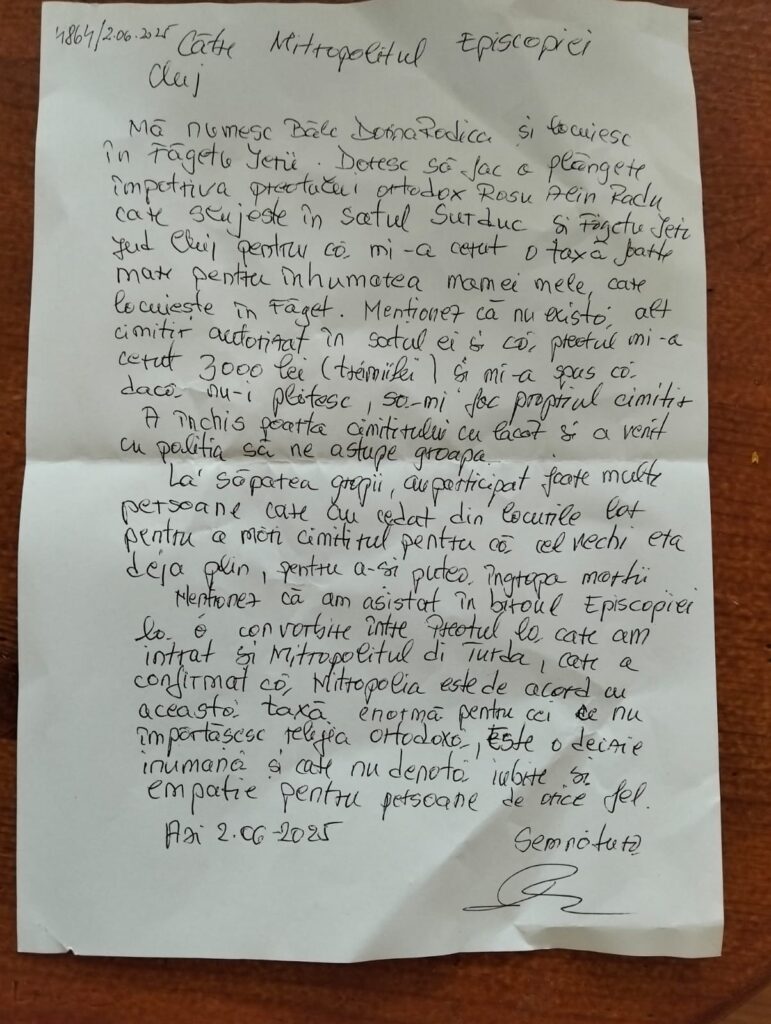 4864/2.06.2025
Către Mitropolitul Episcopiei
Cluj
Mă numesc Bălc Dorina Rodica și locuiesc
în Făgetu Ierii. Doresc să fac o plângere
împotriva preotului ortodox Rosu Alin Radu
care slujeste în satul Surduc si Făgetu Ierii
Jud Cluj pentru că mi-a cerut o taxă foarte
mare pentru înhumarea mamei mele, care
locuiește în Făget. Menționez că nu există alt
cimitir autorizat în satul ei și că preotul mi-a
cerut 3000 lei (treimiilei) și mi-a spus că
dacă nu-i plătesc, să-mi fac propriul cimitir
A închis poarta cimitirului cu lacăt și a venit
cu poliția să ne astupe groapa.
La săpatea gropii, au participat foarte multe
persoane care au cedat din locurile lor
pentru a mări cimitirul pentru că cel vechi era
deja plin, pentru a-si putea îngropa morții
Menționez că am asistat în biroul Episcopiei
la o convorbire între Preotul la care am
intrat și Mitropolitul di Turda, care a
confirmat că Mitropolia este de acord cu
această taxă enormă pentru cei ce nu
împărtășesc religia ortodoxă, Este o decizie
inumană și care nu denotă iubire si
empatie pentru persoane de orice fel.
Azi 2.06-2025 Semnătura